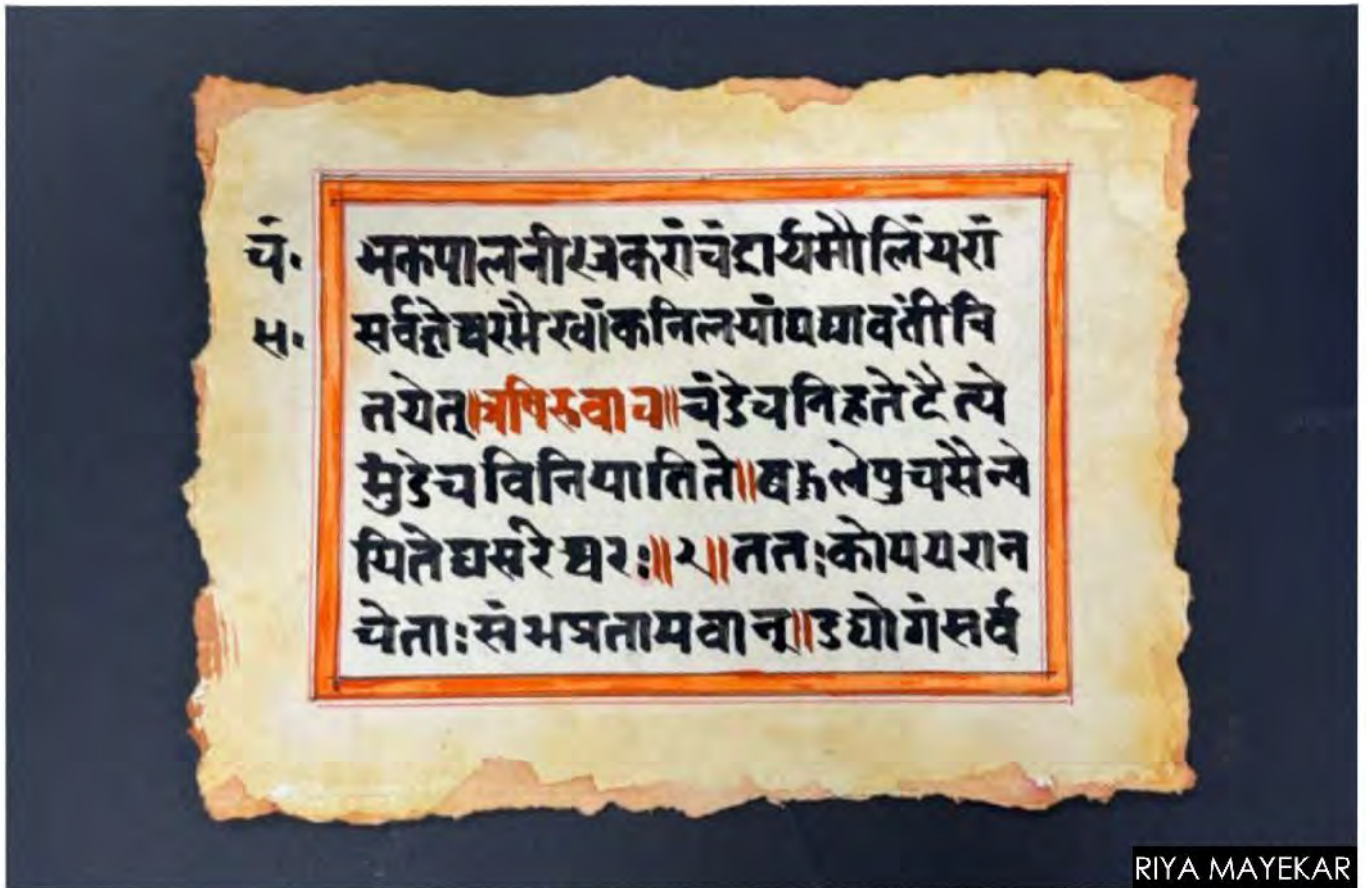 चं. भक्तपालनीरजकरांचंद्रार्यमौलिंयरां
स. सर्वतेश्वरभैरवांकनिलयांपद्मावतींचि
तयेत्॥ऋषिरुवाच॥चंडेचनिहतेदैत्ये
मुंडेचविनियातिते॥बहुलेषुचसैन्ये
यितेद्यसुरेश्वरः॥२॥ततःकोययरान
चेताःसंभप्रतायवान्॥उद्योगंसर्व
RIYA MAYEKAR